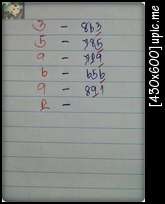 3 - 863
5 - 785
9 - 779
6 - 656
9 - 891
R -
[430x600]uplc.me